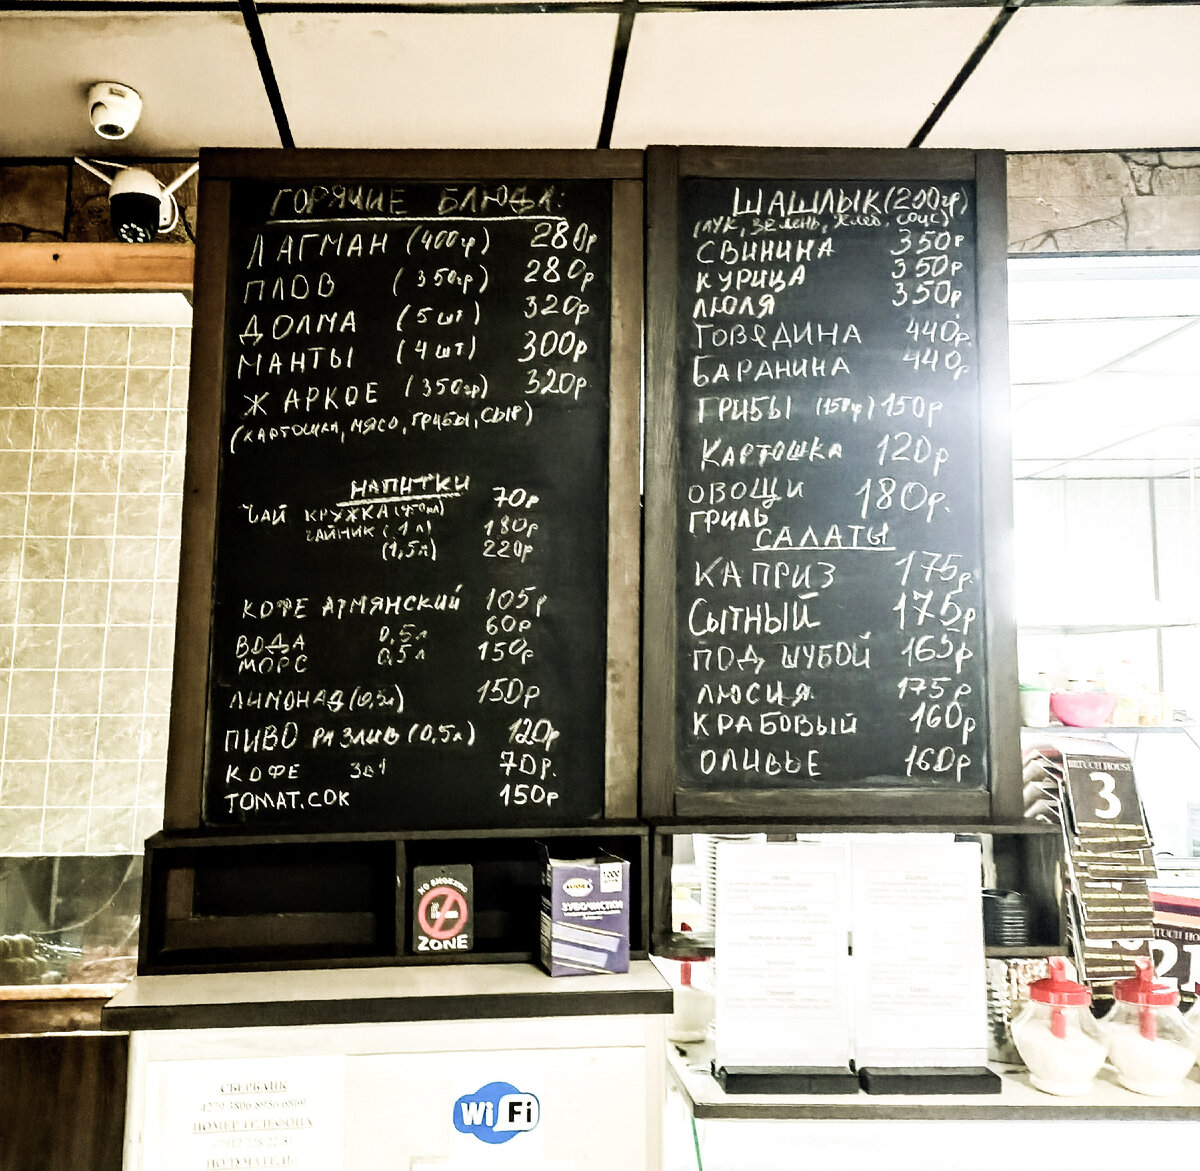 ГОРЯЧИЕ БЛЮДА:
ЛАГМАН (400гр) 280р
ПЛОВ (350гр) 280р
ДОЛМА (5шт) 320р
МАНТЫ (4шт) 300р
ЖАРКОЕ (350гр) 320р
(КАРТОШКА, МЯСО, ГРИБЫ, СЫР)
НАПИТКИ
ЧАЙ КРУЖКА 70р
ЧАЙНИК (1л) 180р
(1,5л) 220р
КОФЕ АРМЯНСКИЙ 105р
ВОДА 0,5л 60р
МОРС 0,5л 150р
ЛИМОНАД (0,5л) 150р
ПИВО РАЗЛИВ (0,5л) 120р
КОФЕ 3в1 70р.
ТОМАТ.СОК 150р
ШАШЛЫК (200гр)
(ЛУК, ЗЕЛЕНЬ, ХЛЕБ, СОУС)
СВИНИНА 350р
КУРИЦА 350р
ЛЮЛЯ 350р.
ГОВЯДИНА 440р.
БАРАНИНА 440р
ГРИБЫ (150гр) 150р
КАРТОШКА 120р
ОВОЩИ 180р.
ГРИЛЬ
САЛАТЫ
КАПРИЗ 175р.
СЫТНЫЙ 175р
ПОД ШУБОЙ 165р
ЛЮСИЯ 175р
КРАБОВЫЙ 160р
ОЛИВЬЕ 160р
NO SMOKING
ZONE
1000
ЗУБОЧИСТКИ
BRTUCH HOUSE
3
21
СБЕРБАНК
НОМЕР ТЕЛЕФОНА
ПОЛУЧАТЕЛЬ:
Wi Fi